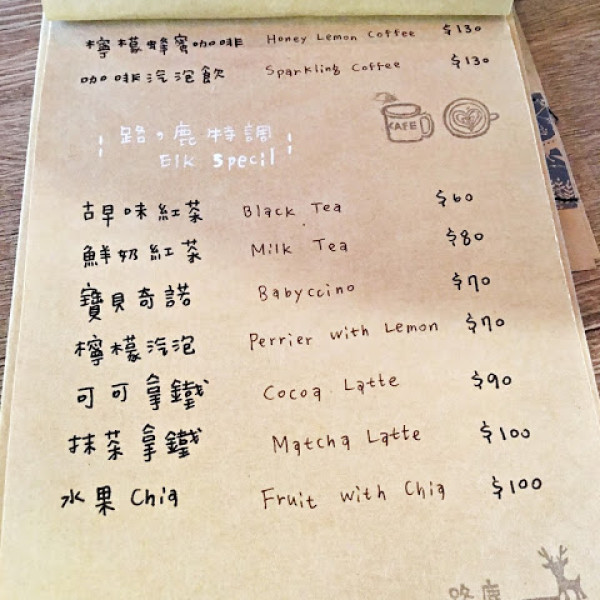 檸檬蜂蜜咖啡 Honey Lemon Coffee $130
咖啡汽泡飲 Sparkling Coffee $130
KAFE
路,鹿特調
Elk Specil
古早味紅茶 Black Tea $60
鮮奶紅茶 Milk Tea $80
寶貝奇諾 Babyccino $70
檸檬汽泡 Perrier with Lemon $70
可可拿鐵 Cocoa Latte $90
抹茶拿鐵 Matcha Latte $100
水果 Chia Fruit with Chia $100
路鹿